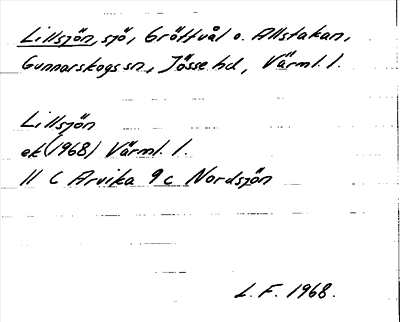 Lillsjön, sjö, Gröttvål o. Allstakan,
Gunnarskogs sn, Jösse hd, Värml. l.
Lillsjön
ek (1968) Värml. l.
11 C Arvika 9 c Nordsjön
L.F. 1968.